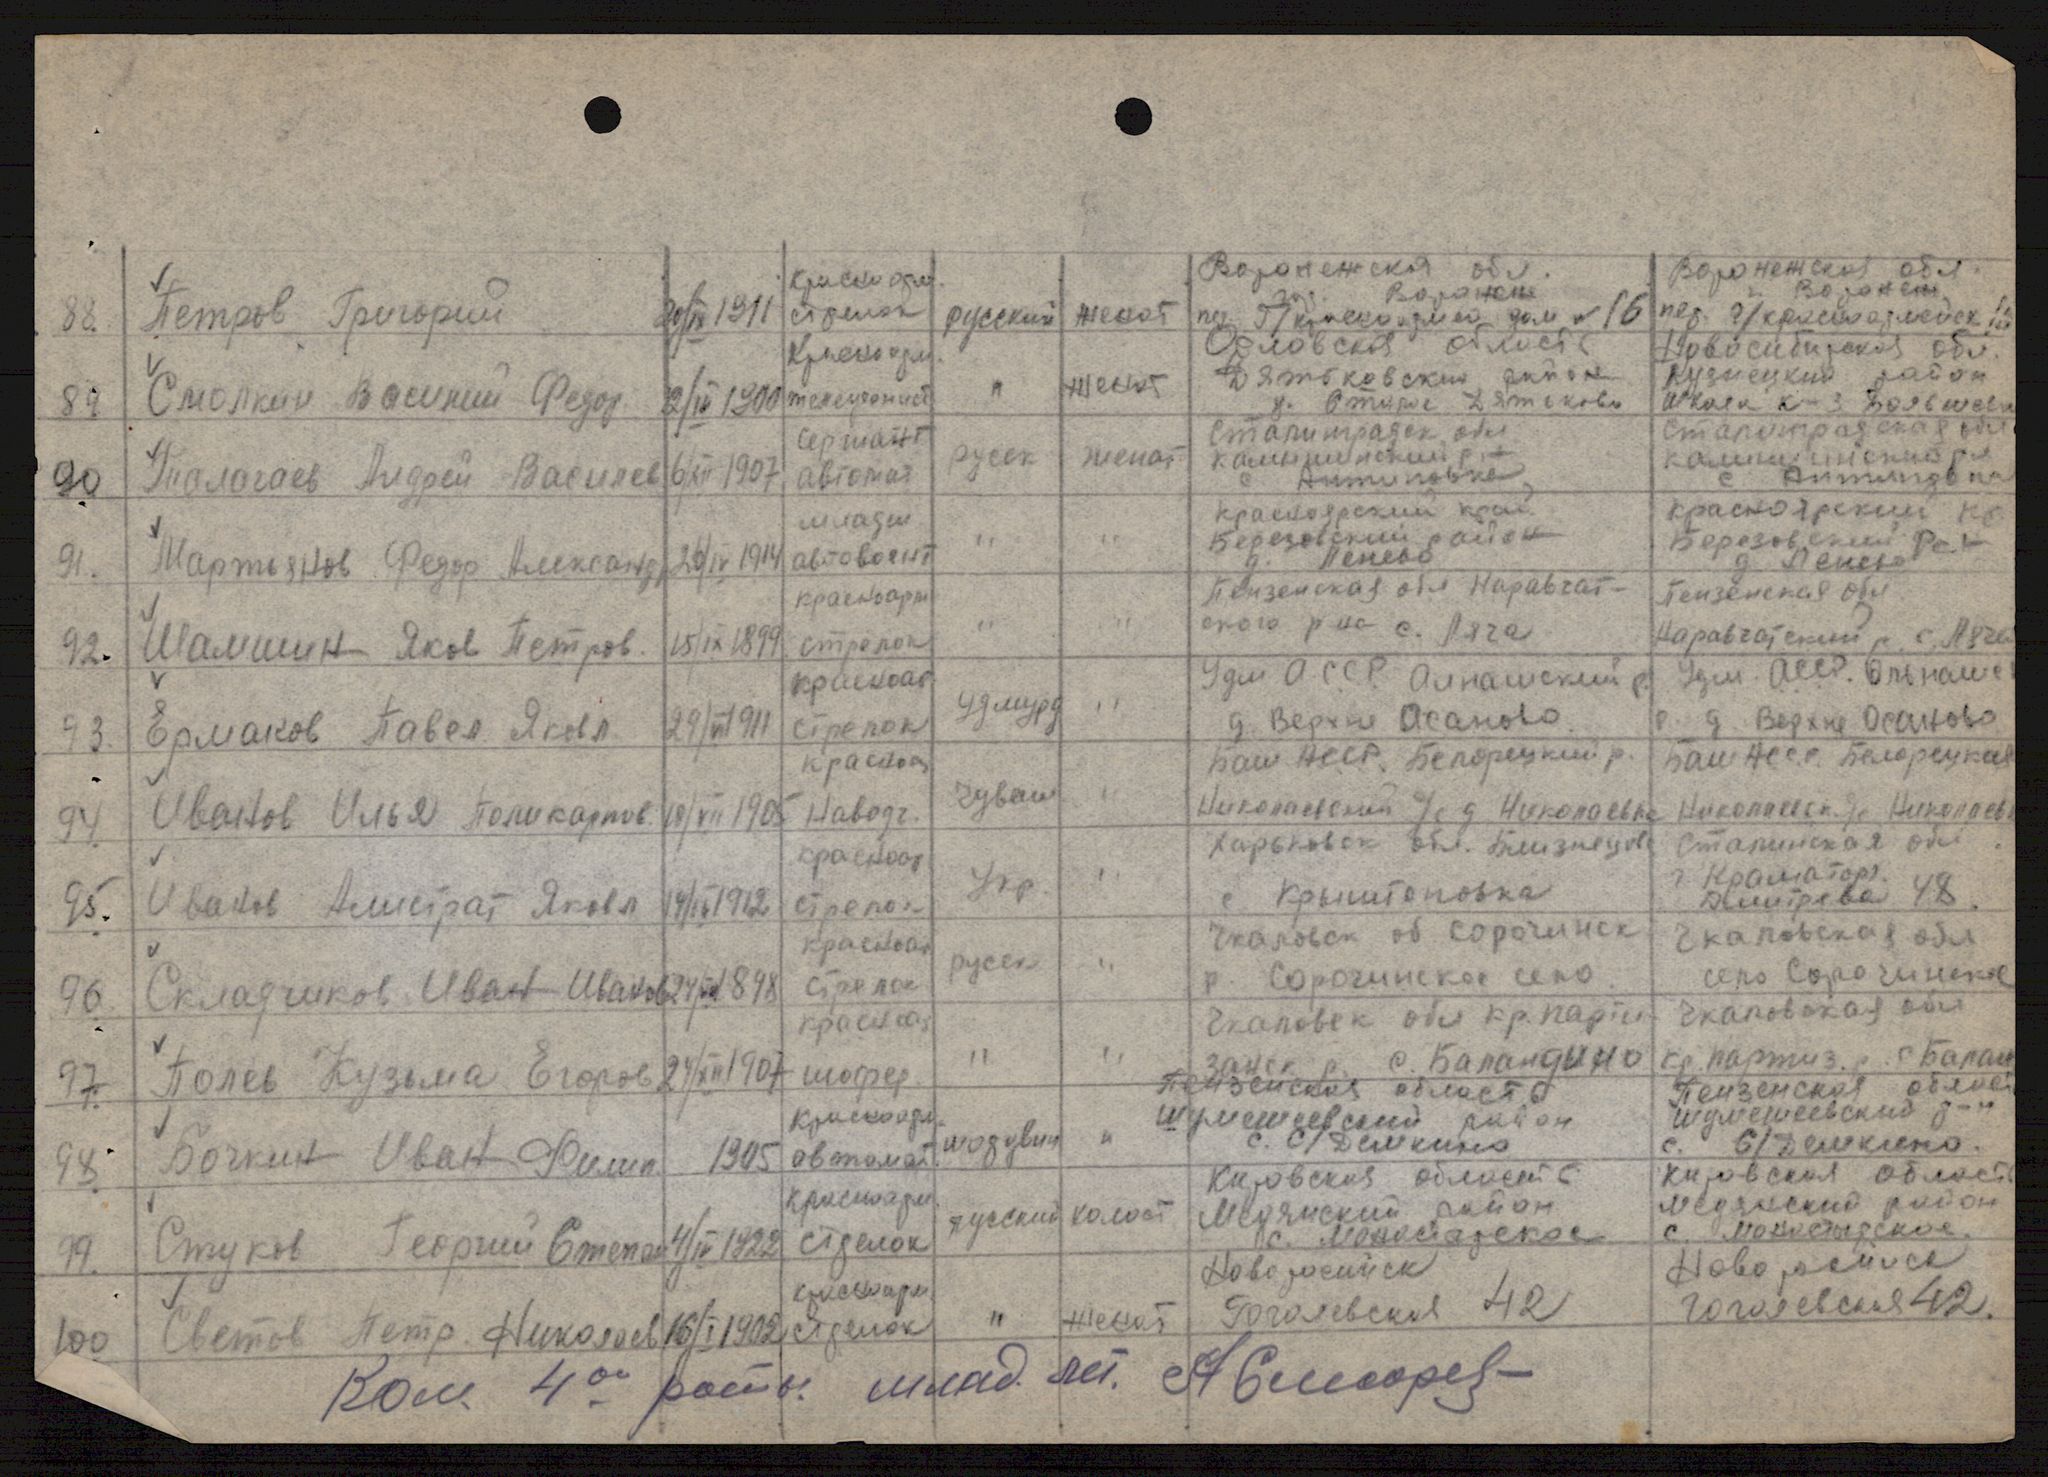 88. Петров Григорий 20/IX 1911 Красноарм. стрелок русский женат Воронежская обл. гор. Воронеж пер. Г/красноармей дом № 16 Воронежская обл. г. Воронеж пер. Г/красноармейск 16
89 Смолкин Василий Федор. 2/IV 1900 Красноарм. телефонист " женат Орловская область Дятьковский район д. Старое Дятьково Новосибирская обл. Кузнецкий район школа К-3
90 Талагаев Андрей Васильев 6/XII 1907 Сержант автомат русск женат Сталинградск обл Камышинский р-н с Антиповка Сталинградская обл Камышинский р-н с Антиповка
91. Мартьянов Федор Александр 20/IV 1914 младш автоматч " " Красноярский край Березовский район д. Ленево Красноярский кр. Березовский р-н д Ленево
92. Шамшин Яков Петров. 15/IX 1899 красноарм стрелок " " Пензенская обл Наравчатского р-на с. Ляча Пензенская обл Наравчатский р. с. Ляча
93. Ермаков Павел Яковл. 29/VI 1911 красноар стрелок удмурд " Удм АССР Алнашский р. д. Верхне Асаново Удм. АССР. Альнашс р. д Верхне Осаново
94. Иванов Илья Поликарпов. 18/VII 1905 красноар Наводч. Чуваш " Баш АССР. Белорецкий р. Николаевский с/с д Николаевка Баш АССР. Белорецкая Николаевск с/с Николаевк
95. Иванов Алистрат Яковл 14/IV 1912 красноар стрелок Укр. " Харьковск обл. Близнецов с Крыштоповка Сталинская обл. г Краматор. Дмитрева 48.
96. Складчиков Иван Иванов 24/VI 1898 красноар стрелок русск " Чкаловск об Сорочинск р Сорочинское село. Чкаловская обл село Сорочинское
97. Полев Кузьма Егоров 24/XII 1907 красноар шофер. " " Чкаловск обл кр. партизанск р. с. Баландино Чкаловская обл кр. партиз. р. с Балан
98. Бочкин Иван Филип. 1905 Красноарм. автомат. мордвин " Пензенская область Шумешеевский район с. С/Демкино Пензенская област Шумешеевский р-н с. С/Демкино.
99. Стуков Георгий Степан 4/IV 1922 Красноарм. стрелок русский холост Кировская область Медянский район с. Монастырское Кировская область Медянский район с. Монастырское.
100 Светов Петр. Николаев 16/I 1902 Красноарм. стрелок " женат Новоросийск Гоголевская 42 Новоросийск Гоголевская 42.
Ком. 4ой роты. млад. лт.